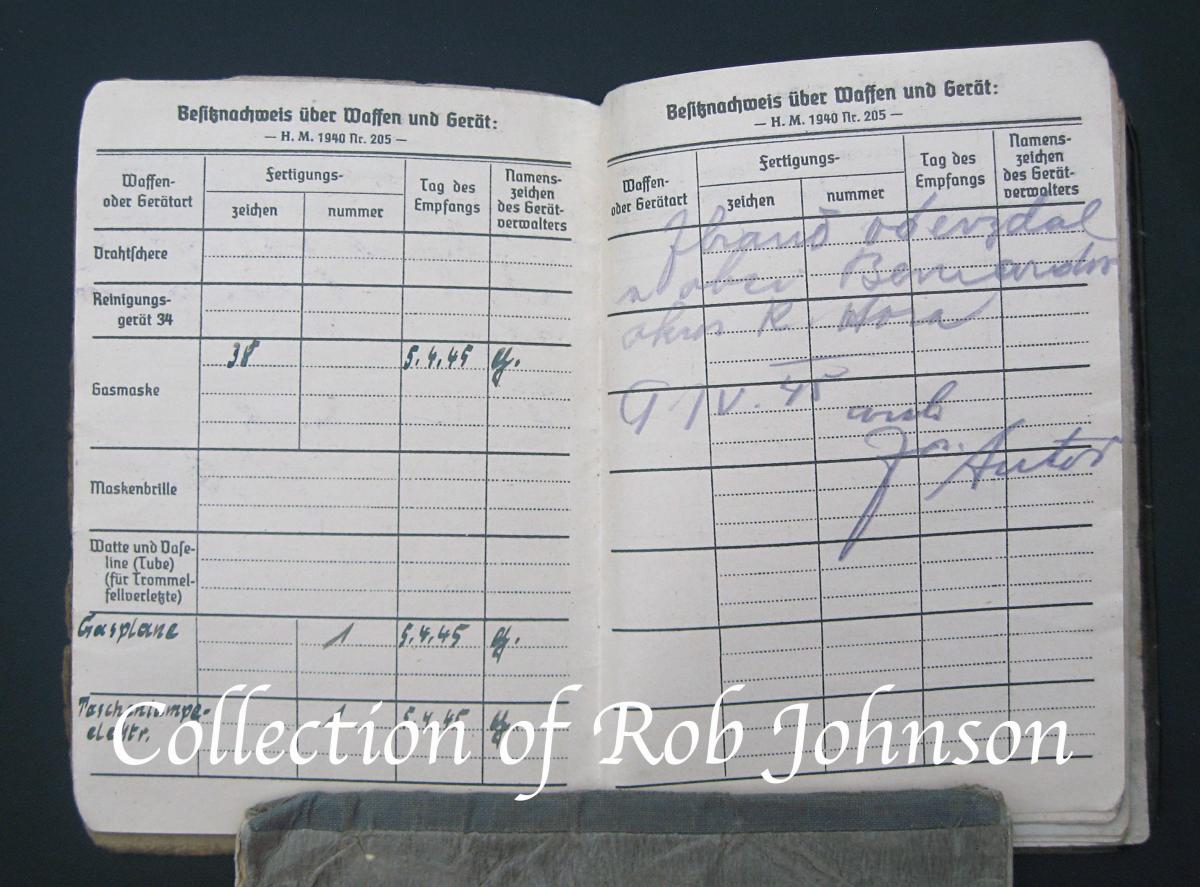 Besitznachweis über Waffen und Gerät:
— H. M. 1940 Nr. 205 —
Waffen-
oder Gerätart
Fertigungs-
zeichen
nummer
Tag des
Empfangs
Namens-
zeichen
des Gerät-
verwalters
Drahtschere
Reinigungs-
gerät 34
Gasmaske
38
5.4.45
Maskenbrille
Watte und Vase-
line (Tube)
(für Trommel-
fellverletzte)
Gasplane
1
5.4.45
Taschenlampe-
elektr.
1
5.4.45
Besitznachweis über Waffen und Gerät:
— H. M. 1940 Nr. 205 —
Waffen-
oder Gerätart
Fertigungs-
zeichen
nummer
Tag des
Empfangs
Namens-
zeichen
des Gerät-
verwalters
Zbraně odevzdal
v obci
okres K. Hora
IV. 45
Collection of Rob Johnson